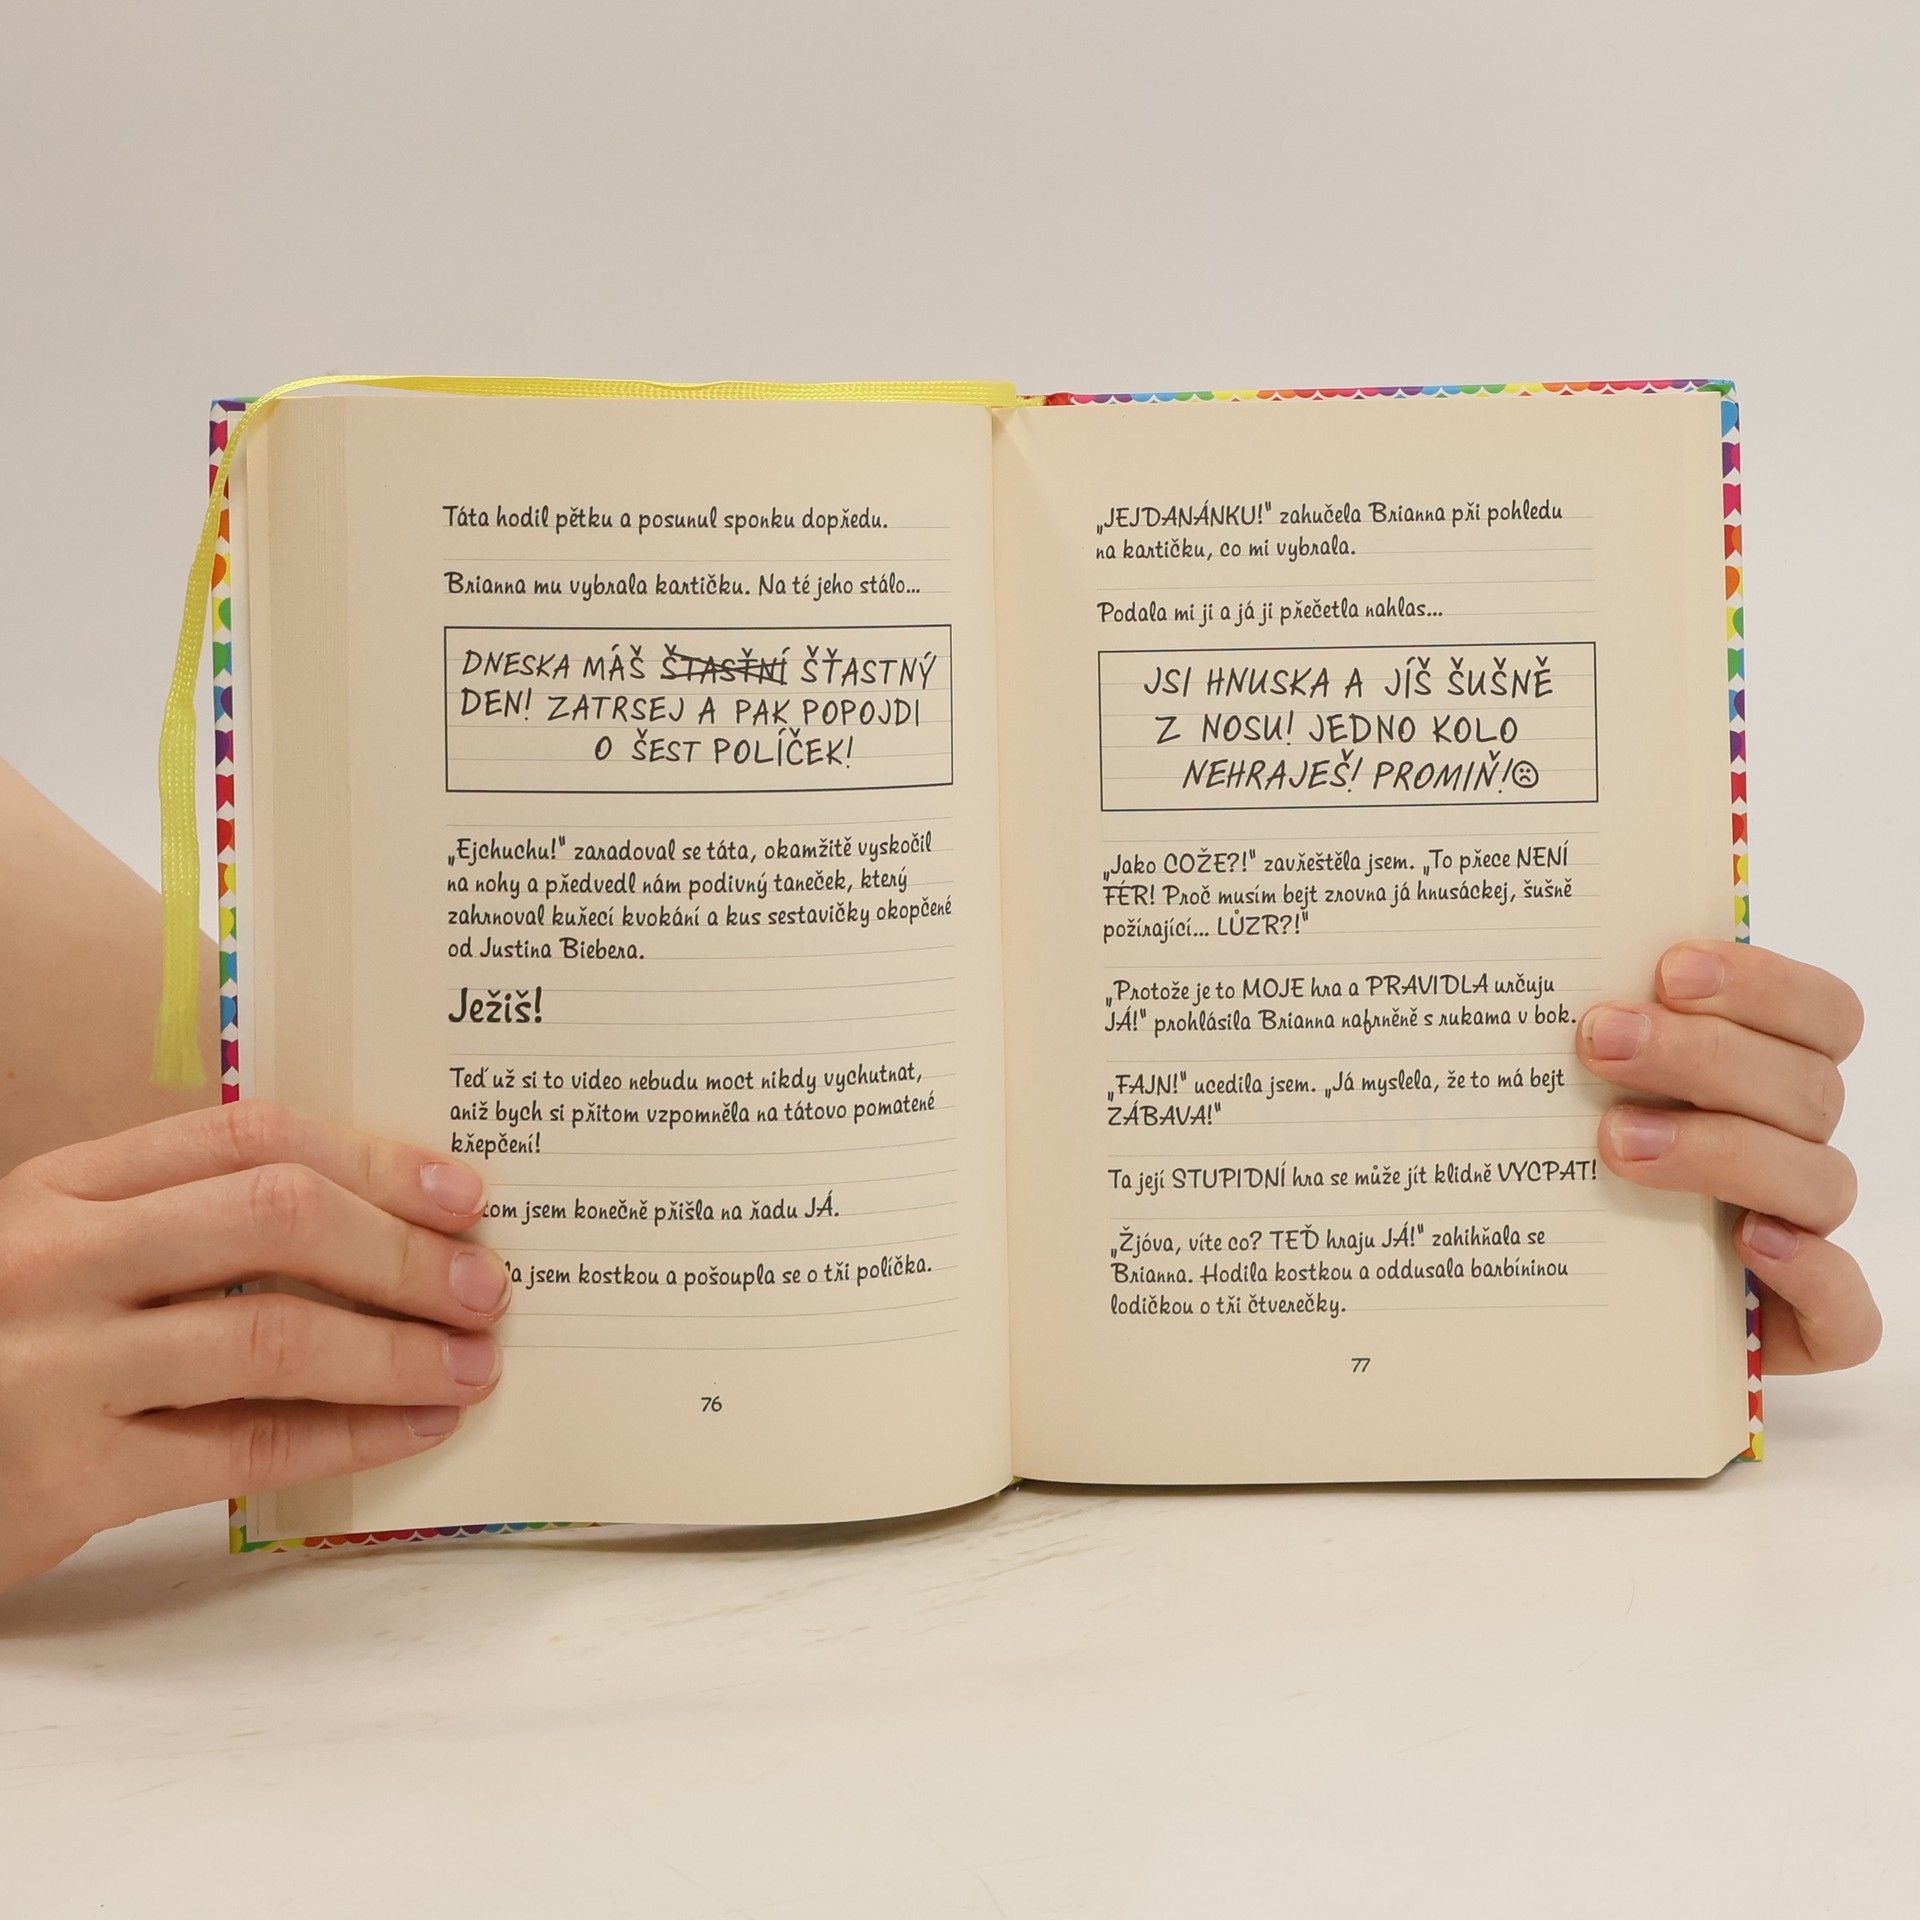 Táta hodil pětku a posunul sponku dopředu.
Brianna mu vybrala kartičku. Na té jeho stálo...
DNESKA MÁŠ ŠTASŤNÍ ŠŤASTNÝ
DEN! ZATRSEJ A PAK POPOJDI
O ŠEST POLÍČEK!
„Ejchuchu!" zaradoval se táta, okamžitě vyskočil
na nohy a předvedl nám podivný taneček, který
zahrnoval kuřecí kvokání a kus sestavičky okopčené
od Justina Biebera.
Ježiš!
Teď už si to video nebudu moct nikdy vychutnat,
aniž bych si přitom vzpomněla na tátovo pomatené
křepčení!
jsem konečně přišla na řadu JÁ.
jsem kostkou a pošoupla se o tři políčka.
76
„JEJDANÁNKU!" zahučela Brianna při pohledu
na kartičku, co mi vybrala.
Podala mi ji a já ji přečetla nahlas...
JSI HNUSKA A JÍŠ ŠUŠNĚ
Z NOSU! JEDNO KOLO
NEHRAJEŠ! PROMIŇ!☹
„Jako COŽE?!" zavřeštěla jsem. „To přece NENÍ
FÉR! Proč musím bejt zrovna já hnusáckej, šušně
požírající... LŮZR?!"
„Protože je to MOJE hra a PRAVIDLA určuju
JÁ!" prohlásila Brianna nafrněně s rukama v bok.
„FAJN!" ucedila jsem. „Já myslela, že to má bejt
ZÁBAVA!"
Ta její STUPIDNÍ hra se může jít klidně VYCPAT!
„Žjóva, víte co? TEĎ hraju JÁ!" zahihňala se
Brianna. Hodila kostkou a oddusala barbíninou
lodičkou o tři čtverečky.
77